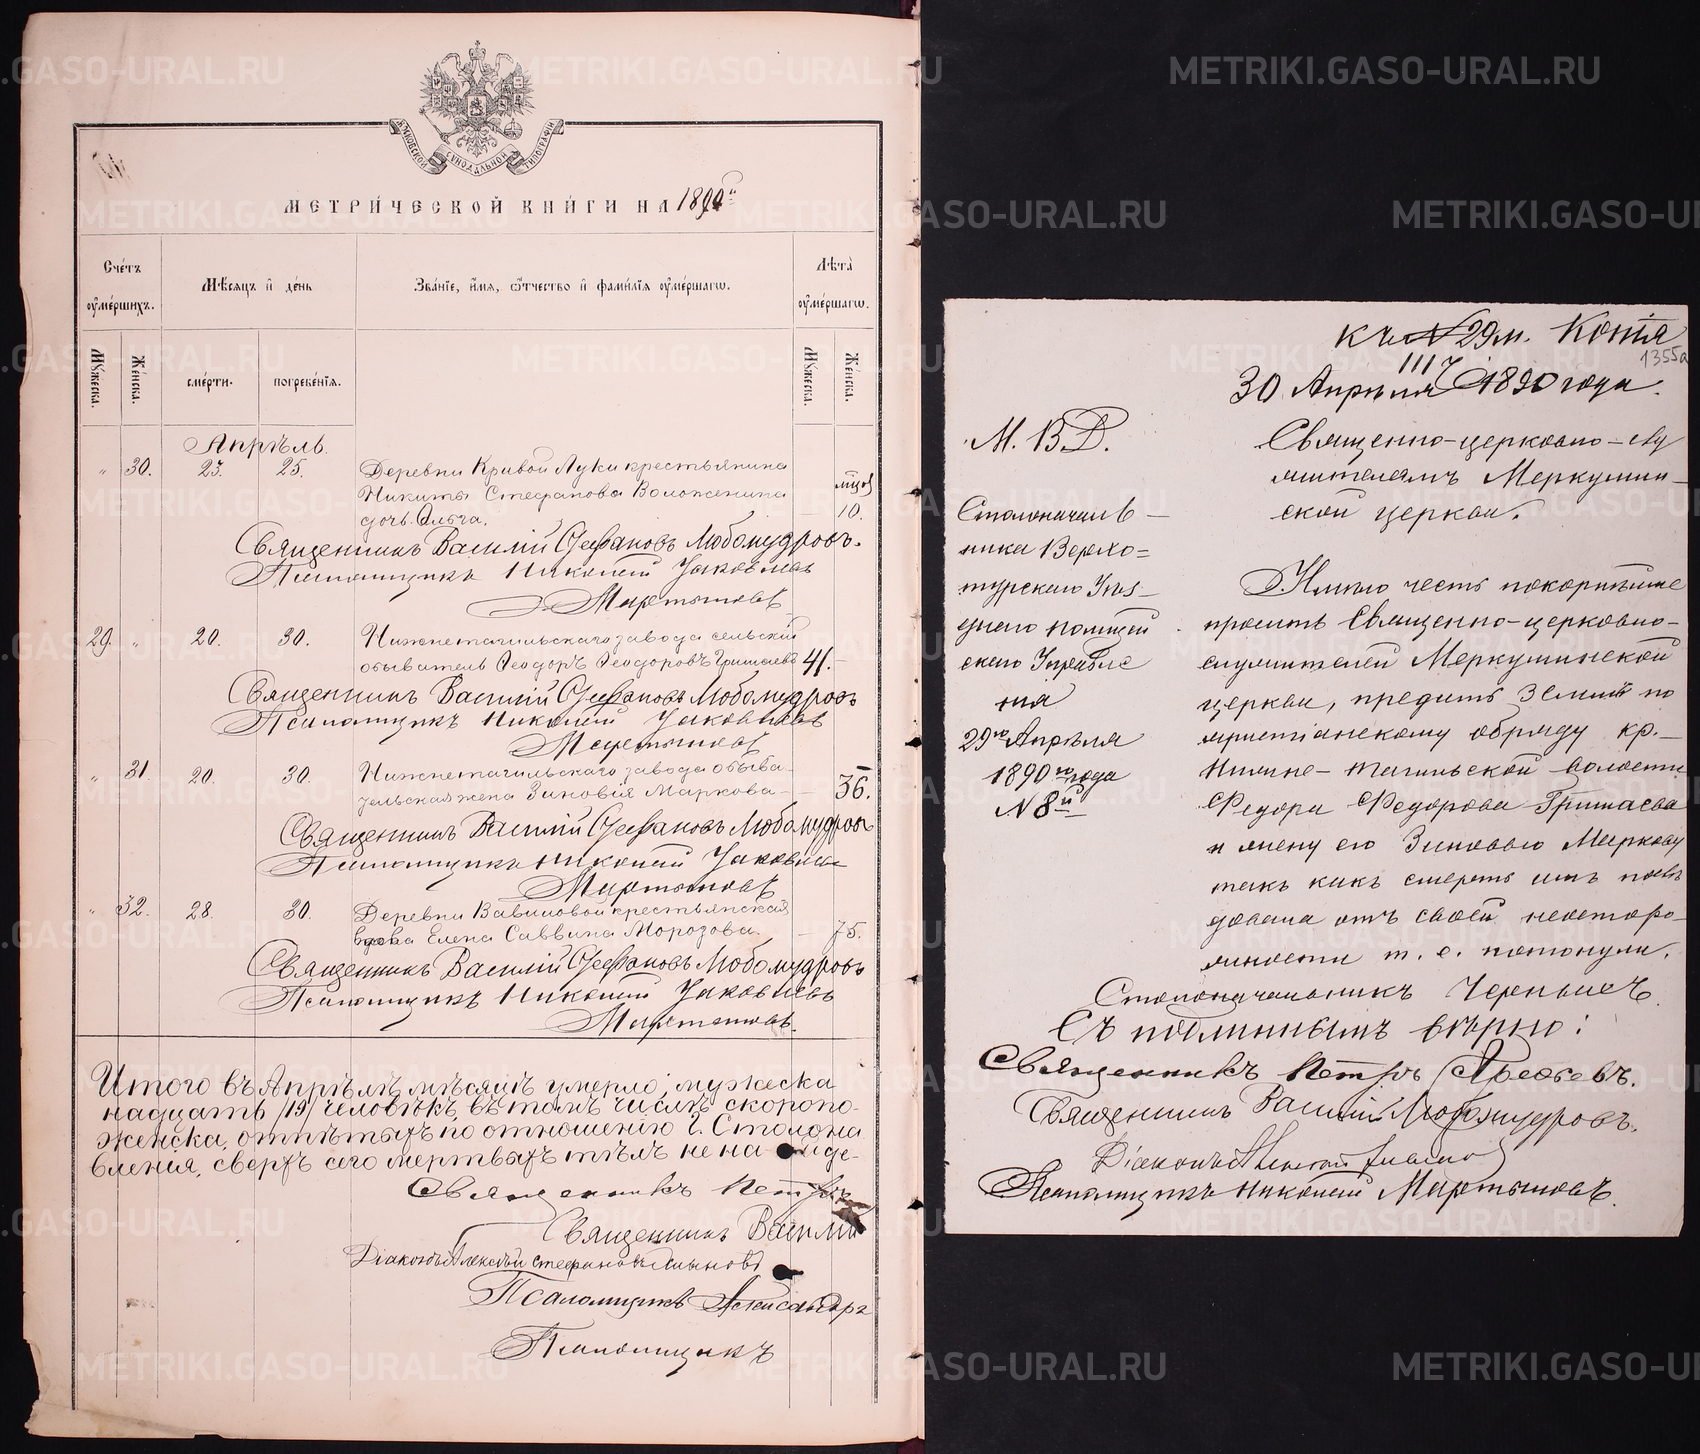 МОСКОВСКОЙ СѴНОДАЛЬНОЙ ТИПОГРАФІИ
МЕТРИ́ЧЕСКОЙ КНИ́ГИ НА 1890й
Сче́тъ ᲂу҆ме́ршихъ.
Мѣ́сяцъ и҆ де́нь
Зва́нїе, и҆́мя, ѻ҆́тчество и҆ фами́лїя ᲂу҆ме́ршагѡ.
Лѣта̀ ᲂу҆ме́ршагѡ.
Мꙋ́жеска. Же́нска.
сме́рти.
погребе́нїѧ.
Мꙋ́жеска. Же́нска.
Апрѣль
„ 30. 23. 25. Деревни Кривой Луки крестьянина
Никиты Стефанова Воложенина
дочь Ольга. 10.
Священникъ Василій Стефановъ Любомудровъ.
Псаломщикъ Николай Яковлевъ
Мартыновъ
29. „ 20. 30. Нижнетагильскаго завода сельскій
обыватель Ѳеодоръ Ѳеодоровъ Гришаевъ 41.
Священникъ Василій Стефановъ Любомудровъ
Псаломщикъ Николай Яковлевъ
Мартыновъ
„ 31. 20. 30. Нижнетагильскаго завода обыва-
тельская жена Зиновія Маркова — 36.
Священникъ Василій Стефановъ Любомудровъ
Псаломщикъ Николай Яковлевъ
Мартыновъ
„ 32. 28. 30. Деревни Вавиловой крестьянская
вдова Елена Саввина Морозова. — 75.
Священникъ Василій Стефановъ Любомудровъ
Псаломщикъ Николай Яковлевъ
Мартыновъ.
Итого въ Апрѣлѣ мѣсяцѣ умерло: мужеска
надцать /19/ человѣкъ, въ томъ числѣ скоропо-
женска, отпѣтыхъ по отношенію Г. Столона
вленія, сверхъ сего мертвыхъ тѣлъ не найде-
Священникъ Петръ
Священникъ Василій
Діаконъ Алексѣй Стефановъ
Псаломщикъ Александръ
Псаломщикъ
Къ № 29 м. Копія
1355а
111
30 Апрѣля 1890 года.
М. В. Д.
Столоначаль-
ника Верхо=
турскаго Уѣз-
днаго полицей
скаго Управле
нія
29го Апрѣля
1890го года
№ 8й
Священно-церковно-слу
жителямъ Меркушин-
ской церкви.
Имѣю честь покорнѣйше
просить Священно-церковно-
служителей Меркушинской
церкви, предать землѣ по
христіанскому обряду кр.-
Нижне-Тагильской волости
Федора Федорова Гришаева
и жену его Зиновью Маркову
такъ какъ смерть ихъ послѣ
довала отъ своей неосторо-
жности т. е. потонули.
Столоначальникъ Чернышевъ
Съ подлиннымъ вѣрно:
Священникъ Петръ Арефьевъ.
Священникъ Василій Любомудровъ.
Діаконъ Алексѣй
Псаломщикъ Николай Мартыновъ.
METRIKI.GASO-URAL.RU